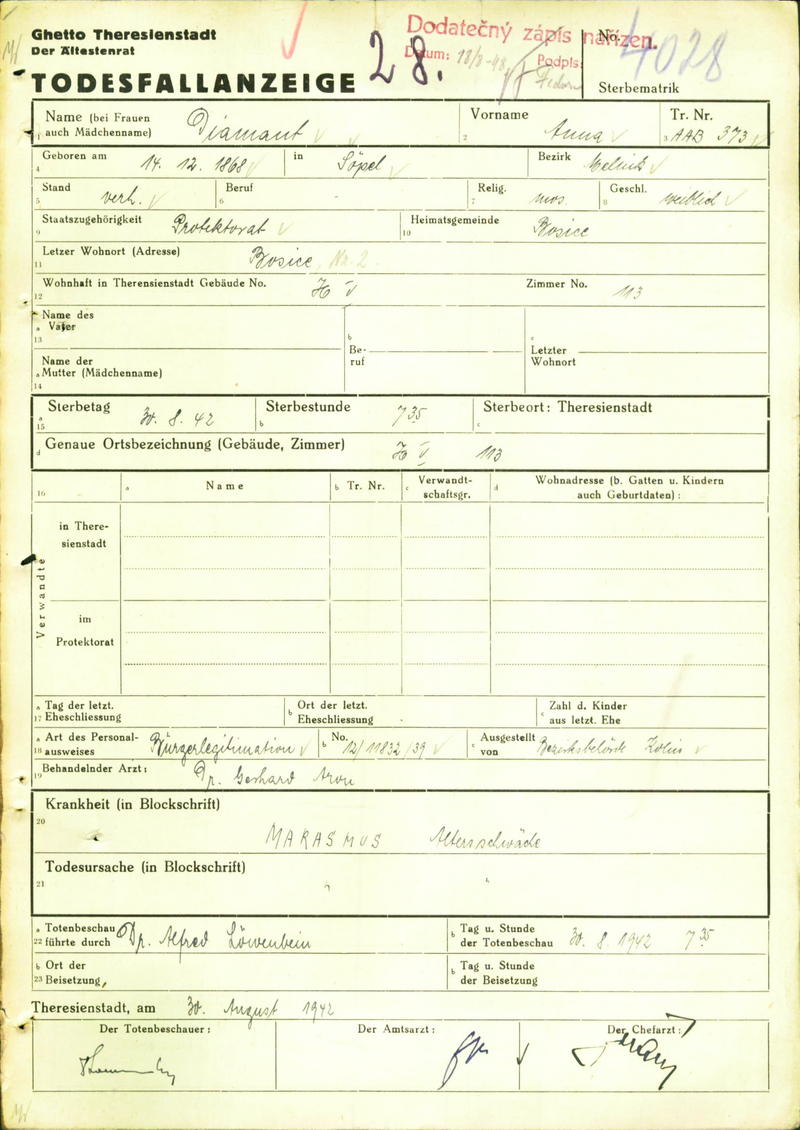 Ghetto Theresienstadt
Der Ältestenrat
TODESFALLANZEIGE
28.
Dodatečný zápis nařízen.
Datum: 18/8-48 Podpis:
No. 4028
Sterbematrik
Name (bei Frauen auch Mädchenname) Diamant
Vorname Anna
Tr. Nr. AAB 373
1 2 3
4 Geboren am 14. 12. 1868 in Söpel Bezirk Melnik
5 Stand verh. 6 Beruf - 7 Relig. mos. 8 Geschl. weiblich
9 Staatszugehörigkeit Protektorat 10 Heimatsgemeinde Bosice
11 Letzer Wohnort (Adresse) Bosice Nr. 2
12 Wohnhaft in Therensienstadt Gebäude No. H V Zimmer No. 113
13 a Name des Vater
14 a Name der Mutter (Mädchenname)
b Beruf
c Letzter Wohnort
15 a Sterbetag 30. 8. 42 b Sterbestunde 7 35 c Sterbeort: Theresienstadt
d Genaue Ortsbezeichnung (Gebäude, Zimmer) H V 113
16 a Name b Tr. Nr. c Verwandtschaftsgr. d Wohnadresse (b. Gatten u. Kindern auch Geburtdaten):
Verwandte
in Theresienstadt
im Protektorat
17 a Tag der letzt. Eheschliessung b Ort der letzt. Eheschliessung c Zahl d. Kinder aus letzt. Ehe
18 a Art des Personalausweises Bürgerlegitimation b No. 12/11832/39 c Ausgestellt von Bezirksbehörde Kolin
19 Behandelnder Arzt: Dr. Gerhard Aron
Krankheit (in Blockschrift)
20
MARASMUS Altersschwäche
Todesursache (in Blockschrift)
21
22 a Totenbeschau führte durch Dr. Alfred Löwenbein b Tag u. Stunde der Totenbeschau 30. 8. 1942 7 35
23 b Ort der Beisetzung b Tag u. Stunde der Beisetzung
Theresienstadt, am 30. August 1942
Der Totenbeschauer: Der Amtsarzt: Der Chefarzt: